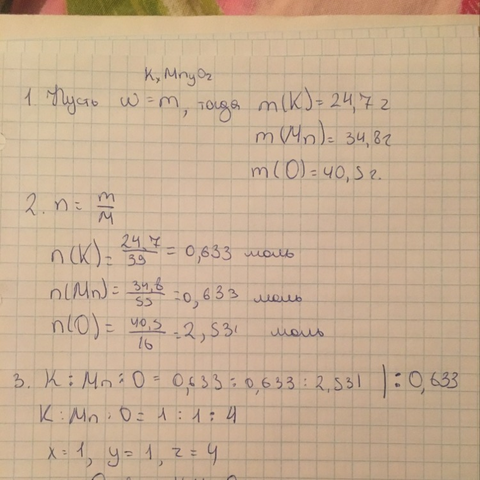 KxMnyOz
1. Пусть w = m, тогда m(K) = 24,7 г
m(Mn) = 34,8г
m(O) = 40,5 г.
2. n = m/M
n(K) = 24,7/39 = 0,633 моль
n(Mn) = 34,8/55 = 0,633 моль
n(O) = 40,5/16 = 2,531 моль
3. K : Mn : O = 0,633 : 0,633 : 2,531 | : 0,633
K : Mn : O = 1 : 1 : 4
x = 1, y = 1, z = 4